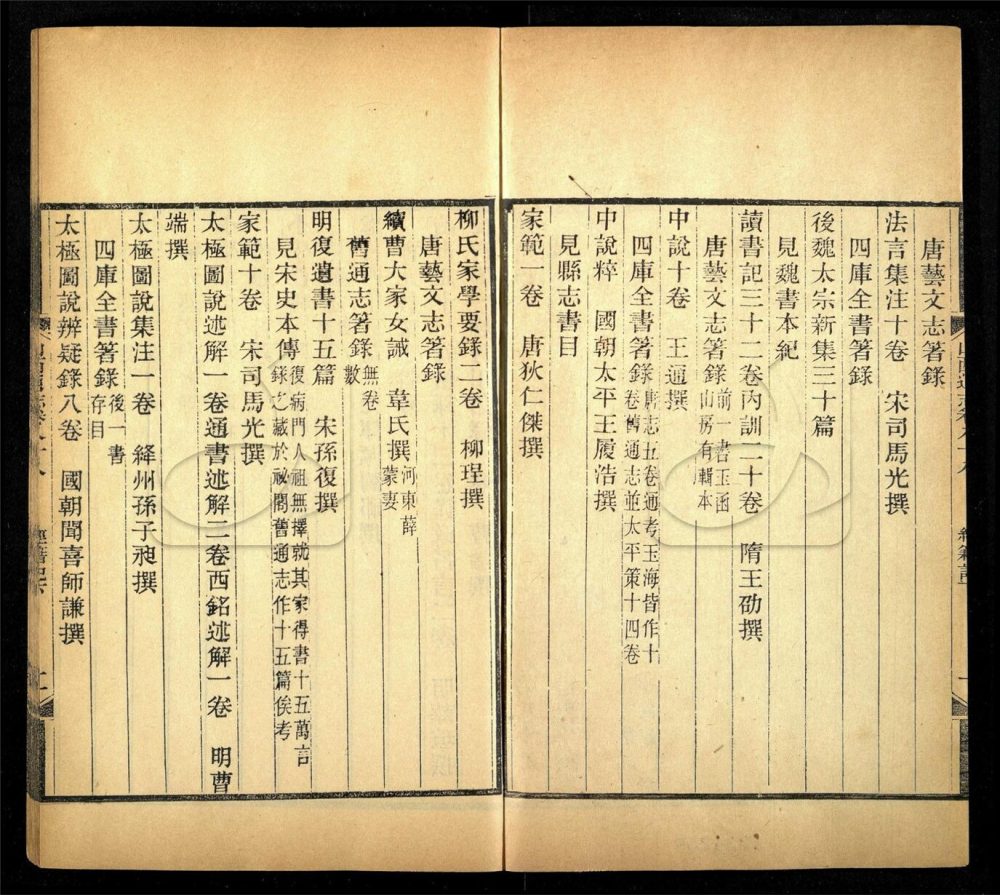 唐藝文志箸錄
法言集注十卷　宋司馬光撰
四庫全書箸錄
後魏太宗新集三十篇
見魏書本紀
讀書記三十二卷丙訓二十卷　隋王劭撰
唐藝文志箸錄前一書玉函山房有輯本
中說十卷　王通撰
四庫全書箸錄唐志五卷通考玉海皆作十卷舊通志並太平策十四卷
中說粹　國朝太平王履浩撰
見縣志書目
家範一卷　唐狄仁傑撰
柳氏家學要錄二卷　柳珵撰
唐藝文志箸錄
續曹大家女誡　韋氏撰河東薛蒙妻
舊通志箸錄無卷數
明復遺書十五篇　宋孫復撰
見宋史本傳復病門人祖無擇就其家得書十五萬言錄之藏於祕閣舊通志作十五篇俟考
家範十卷　宋司馬光撰
太極圖說述解一卷通書述解二卷西銘述解一卷　明曹
端撰
太極圖說集注一卷　絳州孫子昶撰
四庫全書箸錄後一書存目
太極圖說辨疑錄八卷　國朝聞喜師謙撰